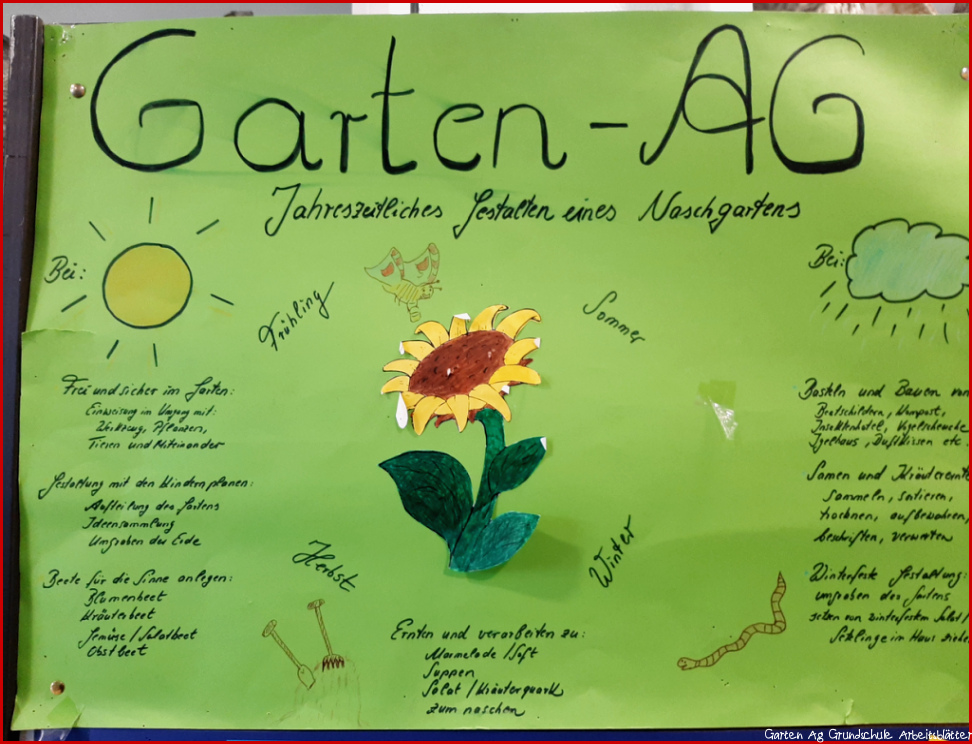 Garten-AG
Jahreszeitliches Gestalten eines Naschgartens
Bei:
Bei:
Frühling
Sommer
Frei und sicher im Garten:
Einweisung im Umgang mit:
Werkzeug, Pflanzen,
Tieren und Miteinander
Gestaltung mit den Kindern planen:
Aufteilung des Gartens
Ideensammlung
Umgraben der Erde
Beete für die Sinne anlegen:
Blumenbeet
Kräuterbeet
Gemüse/Salatbeet
Obstbeet
Herbst
Winter
Ernten und verarbeiten zu:
Marmelade/Saft
Suppen
Salat/Kräuterquark
zum naschen
Basteln und Bauen von
Beetschildern, Kompost,
Insektenhotel, Vogelscheuche
Igelhaus, Duftkissen etc.
Samen und Kräuterernte
Sammeln, sortieren,
trocknen, aufbewahren,
beschriften, verwerten
Winterfeste Gestaltung:
umgraben des Gartens
setzen von winterfestem Salat/
Setzlinge im Haus ziehen
Garten Ag Grundschule Arbeitsblätter